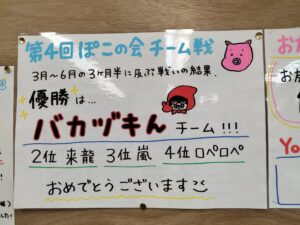 第4回ぽこの会 チーム戦
3月〜6月の3ヶ月半に及ぶ戦いの結果.
優勝は…
バカヅキん チーム!!!
2位 来龍 3位 嵐 4位 ロペロペ
おめでとうございます